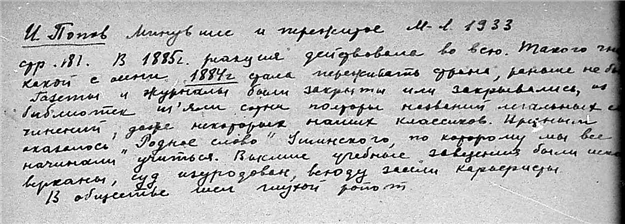 И. Попов Минувшее и пережитое М-Л. 1933
стр. 181. В 1885г. реакция действовала во всю. Такого
какой с осени 1884г стала переживать страна, раньше не
Газеты и журналы были закрыты или закрывались, из
библиотек из'яли сотни полторы названий легальных
чинений, даже некоторых наших классиков. Вредным
оказалось "Родное слово" Ушинского, по которому мы все
начинали учиться. Высшие учебные заведения были
верканы, суд изуродован, всюду засели карьеристы.
В обществе шел глухой ропот